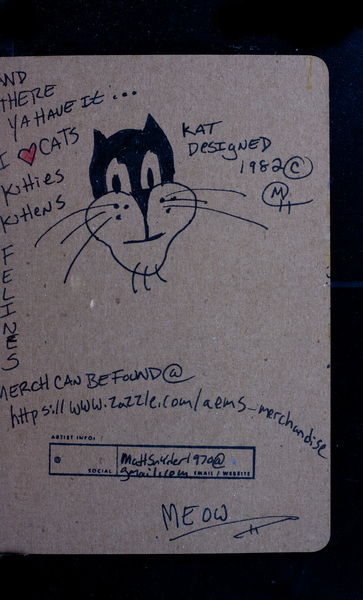 AND
THERE
YA HAVE IT...
I ❤ CATS
Kitties
Kittens
FELINES
KAT
DESIGNED
1982 ©
M
MERCH CAN BE FOUND @
https://www.zazzle.com/aems_merchandise
ARTIST INFO:
@
SOCIAL
MattSnyder1970@
gmail.com EMAIL / WEBSITE
MEOW